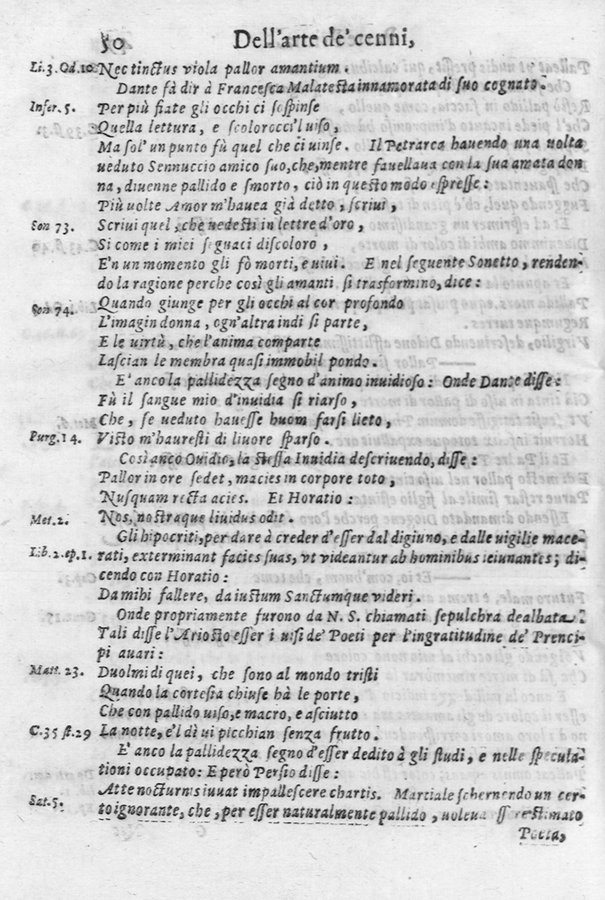 50 Dell'arte de' cenni,
Li.3. Od.10. Nec tinctus viola pallor amantium.
Dante fà dir à Francesca Malatesta innamorata di suo cognato.
Infer. 5. Per più fiate gli occhi ci sospinse
Quella lettura, e scolorocci'l uiso,
Ma sol' un punto fù quel che ci uinse. Il Petrarca hauendo una uolta
ueduto Sennuccio amico suo, che, mentre fauellaua con la sua amata don
na, diuenne pallido e smorto, ciò in questo modo espresse:
Più uolte Amor m'hauea già detto, scriui,
Son 73. Scriui quel, che uedesti in lettre d'oro,
Si come i miei seguaci discoloro,
E'n un momento gli fò morti, e uiui. E nel seguente Sonetto, renden-
do la ragione perche così gli amanti si trasformino, dice:
Son 74. Quando giunge per gli occhi al cor profondo
L'imagin donna, ogn'altra indi si parte,
E le uirtù, che l'anima comparte
Lascian le membra quasi immobil pondo.
E' anco la pallidezza segno d'animo inuidioso: Onde Dante disse:
Fù il sangue mio d'inuidia sì riarso,
Che, se ueduto hauesse huom farsi lieto,
Purg. 14. Visto m'hauresti di liuore sparso.
Così anco Ouidio, la stessa Inuidia descriuendo, disse:
Pallor in ore sedet, macies in corpore toto,
Nusquam recta acies. Et Horatio:
Met. 2. Nos, nostraque liuidus odit.
Gli hipocriti, per dare à creder d'esser dal digiuno, e dalle uigilie mace-
Lib. 2. ep. 1. rati, exterminant facies suas, vt videantur ab hominibus ieiunantes; di-
cendo con Horatio:
Da mihi fallere, da iustum Sanctumque videri.
Onde propriamente furono da N. S. chiamati sepulchra dealbata.
Tali disse l'Ariosto esser i uisi de' Poeti per l'ingratitudine de' Prenci-
pi auari:
Matt. 23. Duolmi di quei, che sono al mondo tristi
Quando la cortesia chiuse hà le porte,
Che con pallido uiso, e macro, e asciutto
C. 35 st. 29 La notte, e'l dì ui picchian senza frutto.
E' anco la pallidezza segno d'esser dedito à gli studi, e nelle specula-
tioni occupato: E però Persio disse:
Sat. 5. At te nocturnis iuuat impallescere chartis. Martiale schernendo un cer-
to ignorante, che, per esser naturalmente pallido, uoleua esser estimato
Poeta,